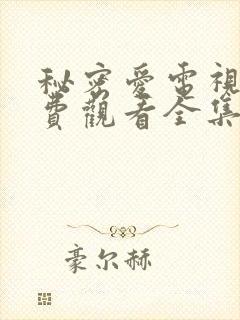 秘密愛電視
費觀看全集
豪尔赫